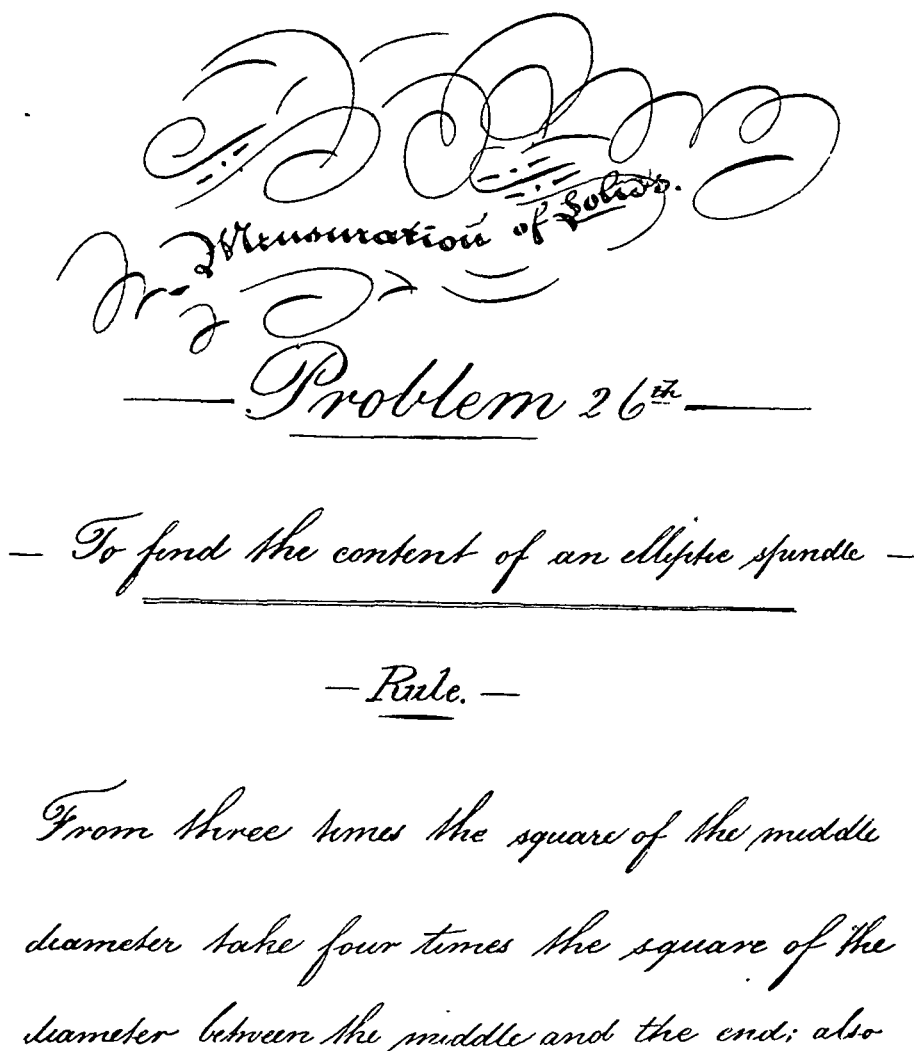 Mensuration of Solids.
Problem 26th
To find the content of an elliptic spindle
Rule.
From three times the square of the middle
diameter take four times the square of the
diameter between the middle and the end; also